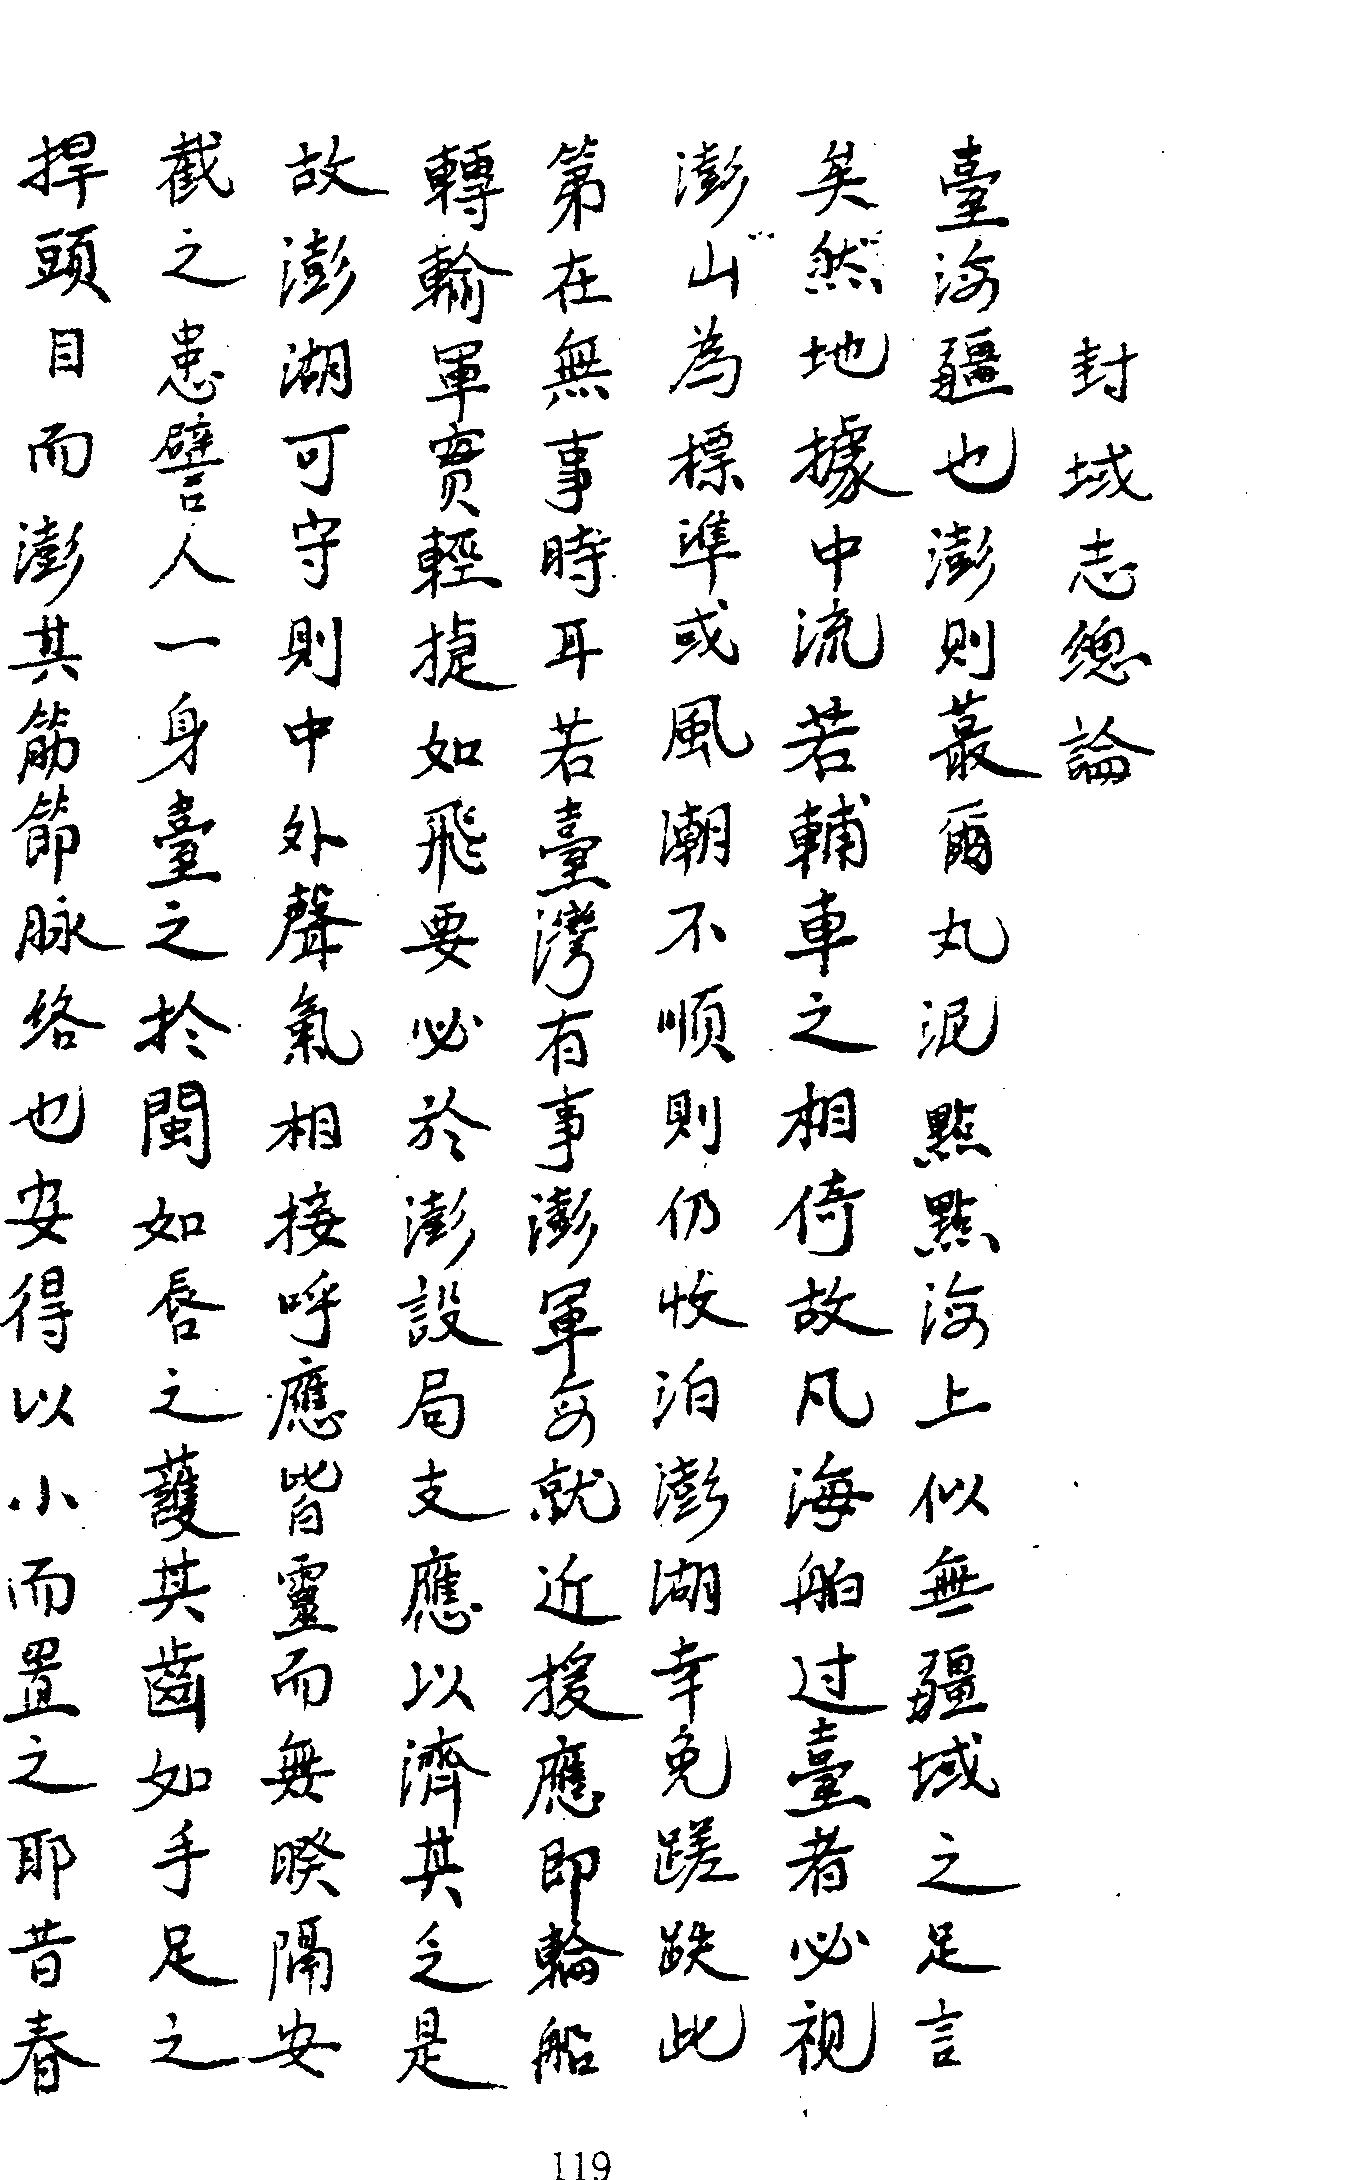 封域志總論
臺海疆也澎則蕞爾丸泥點點海上似無疆域之足言
矣然地據中流若輔車之相倚故凡海舶过臺者必視
澎山為標準或風潮不順則仍收泊澎湖幸免蹉跌此
第在無事時耳若臺灣有事澎軍每就近援應即輪船
轉輸軍實輕捷如飛要必於澎設局支應以濟其乏是
故澎湖可守則中外聲氣相接呼應皆靈而無暌隔安
截之患譬人一身臺之於閩如唇之護其齒如手足之
捍頭目而澎其筋節脉络也安得以小而置之耶昔春
119